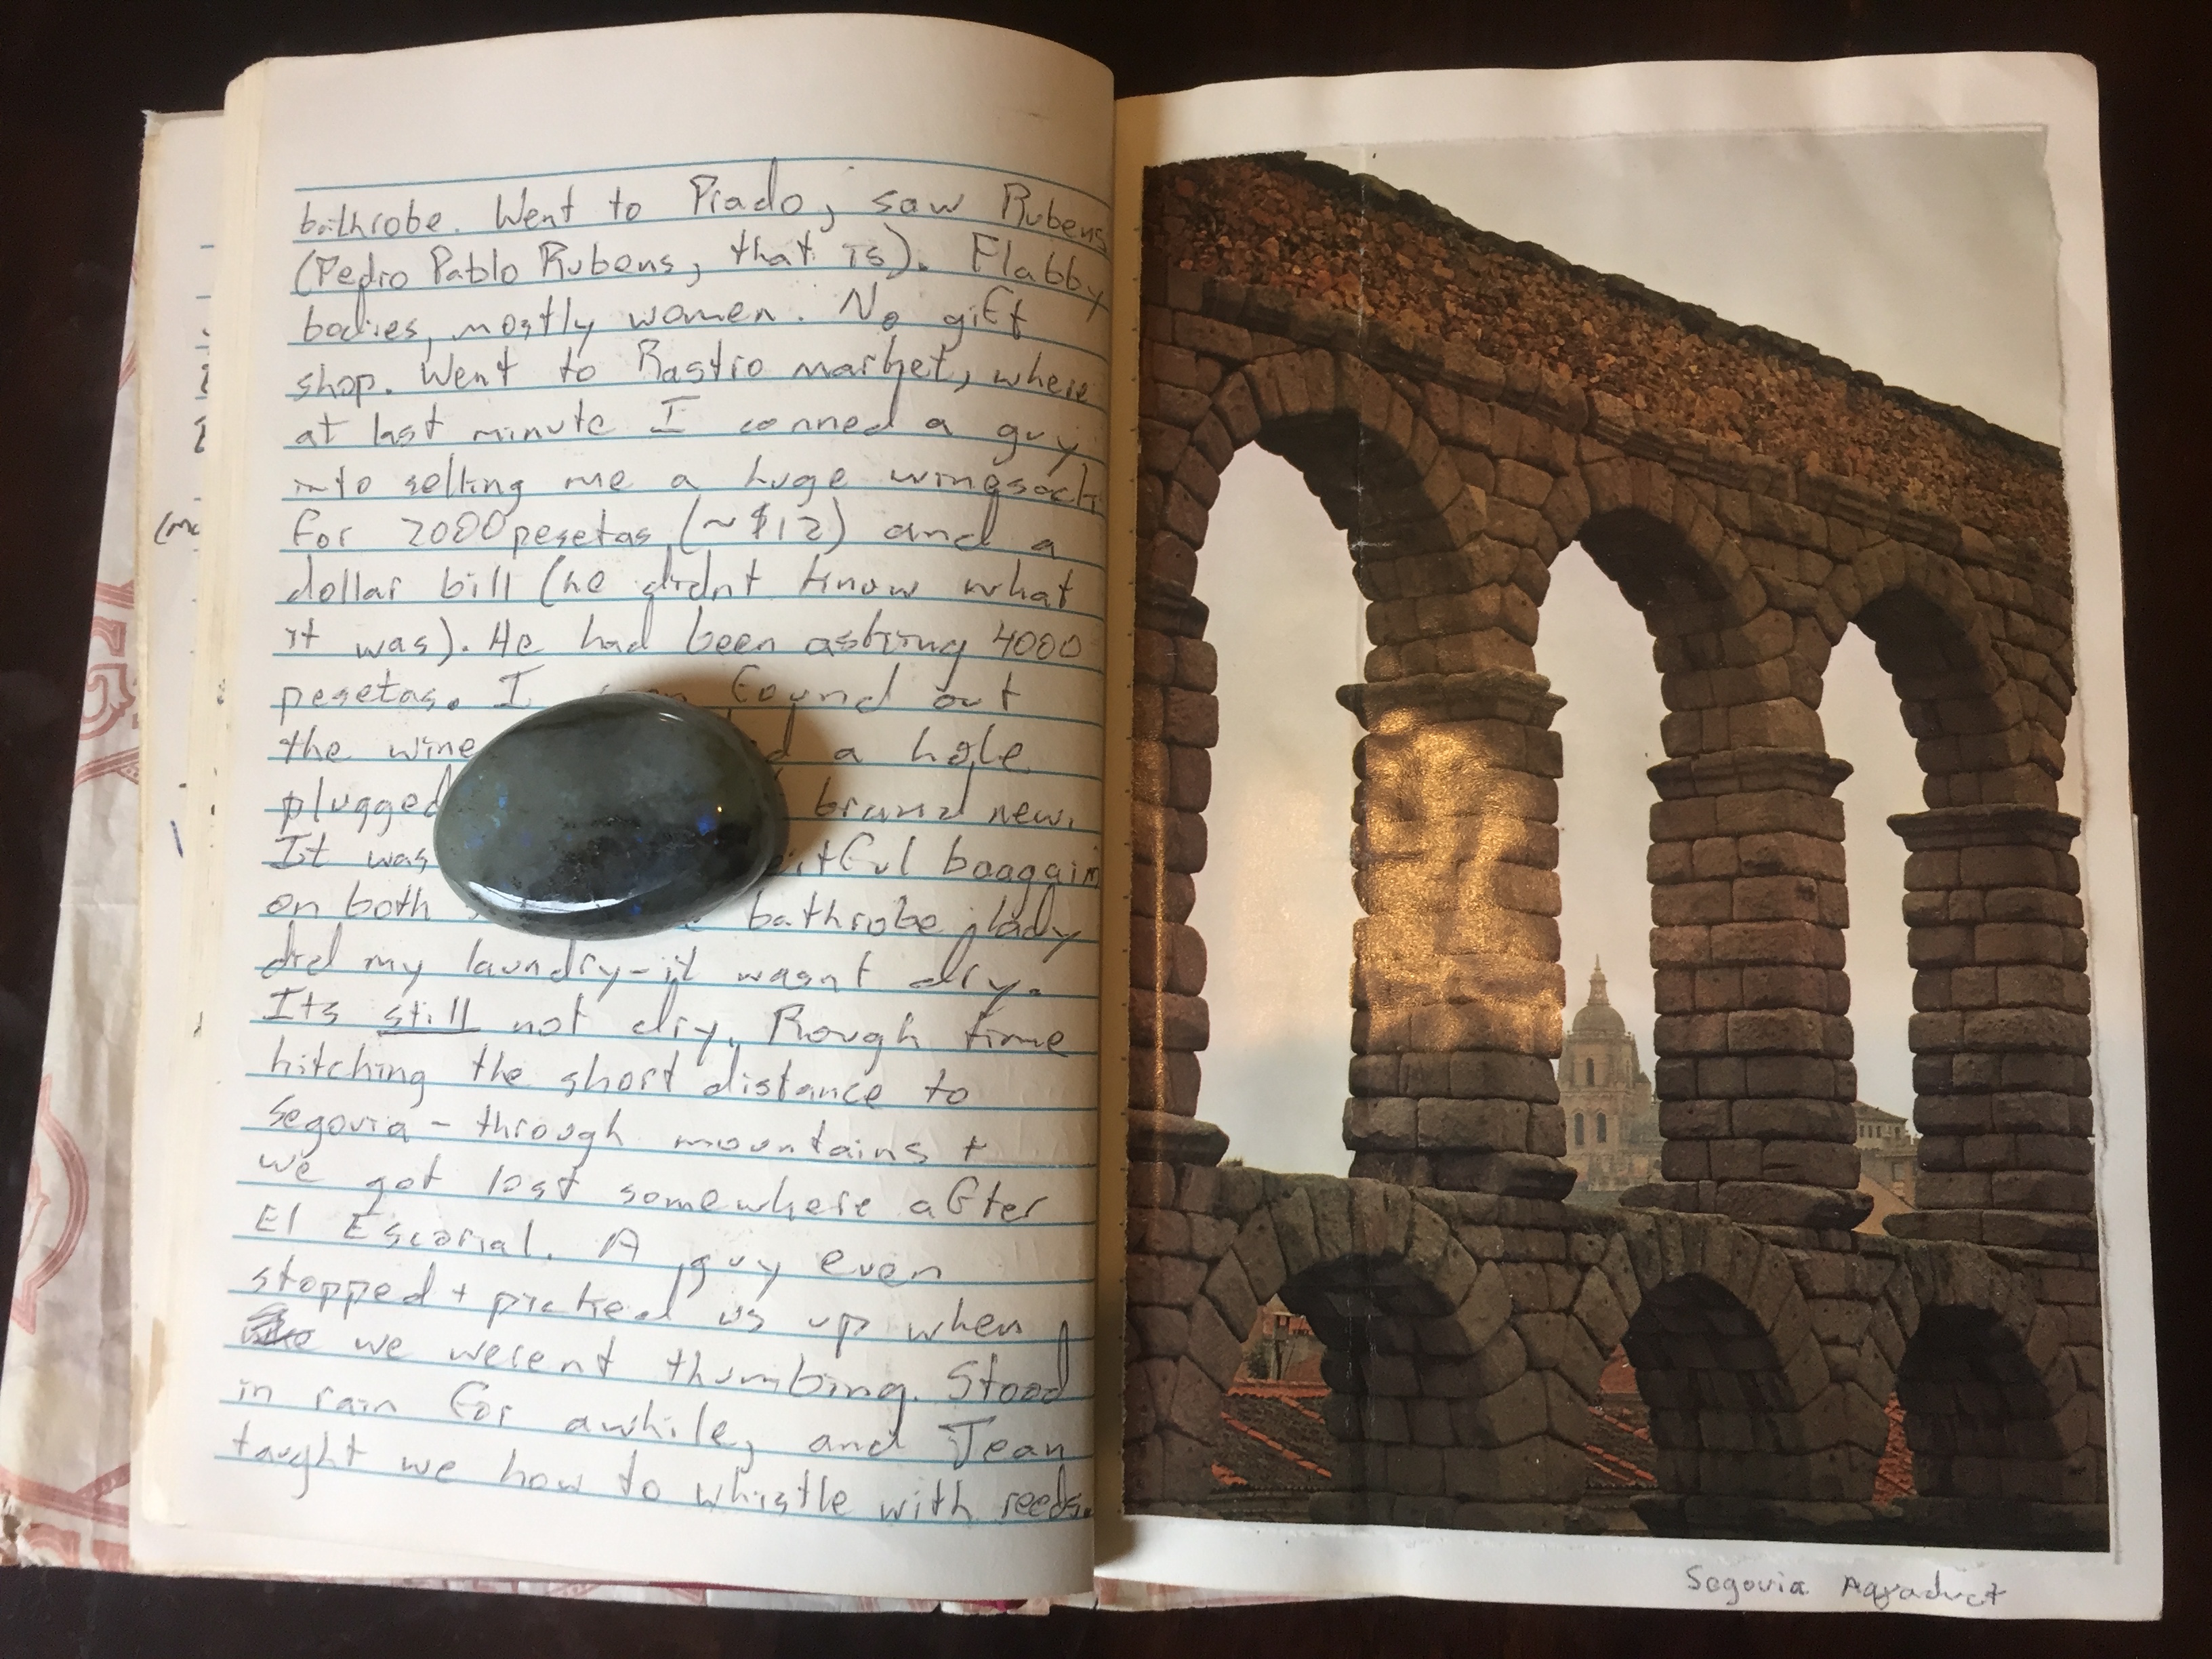 bathrobe. Went to Prado, saw Rubens
(Pedro Pablo Rubens, that is). Flabby
bodies, mostly women. No gift
shop. Went to Rastro market, where
at last minute I conned a guy
into selling me a huge winesack
for 2000 pesetas (~$12) and a
dollar bill (he didnt know what
it was). He had been asking 4000
pesetas. I found out
the wine a hole
plugged brand new.
It was baagain
on both bathrobe lady
did my laundry-it wasnt dry.
Its still not dry. Rough time
hitching the short distance to
Segovia - through mountains +
we got lost somewhere after
El Escorial. A guy even
stopped + picked us up when
we werent thumbing. Stood
in rain for awhile, and Jean
taught we how to whistle with reeds.
(mc
Segovia Aqaduct